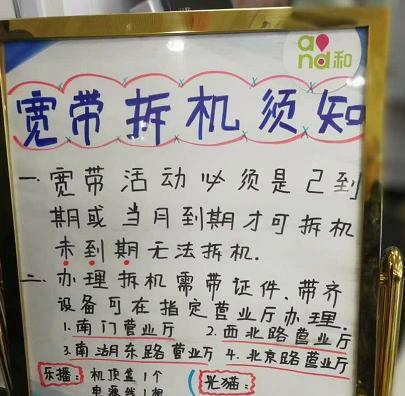 and和
宽带拆机须知
一.宽带活动必须是已到
期或当月到期才可拆机
未到期无法拆机.
二.办理拆机需带证件、带齐
设备可在指定营业厅办理.
1.南门营业厅 2.西北路营业厅
3.南湖东路营业厅 4.北京路营业厅
乐播: 机顶盒1个 光猫:
电源线1根